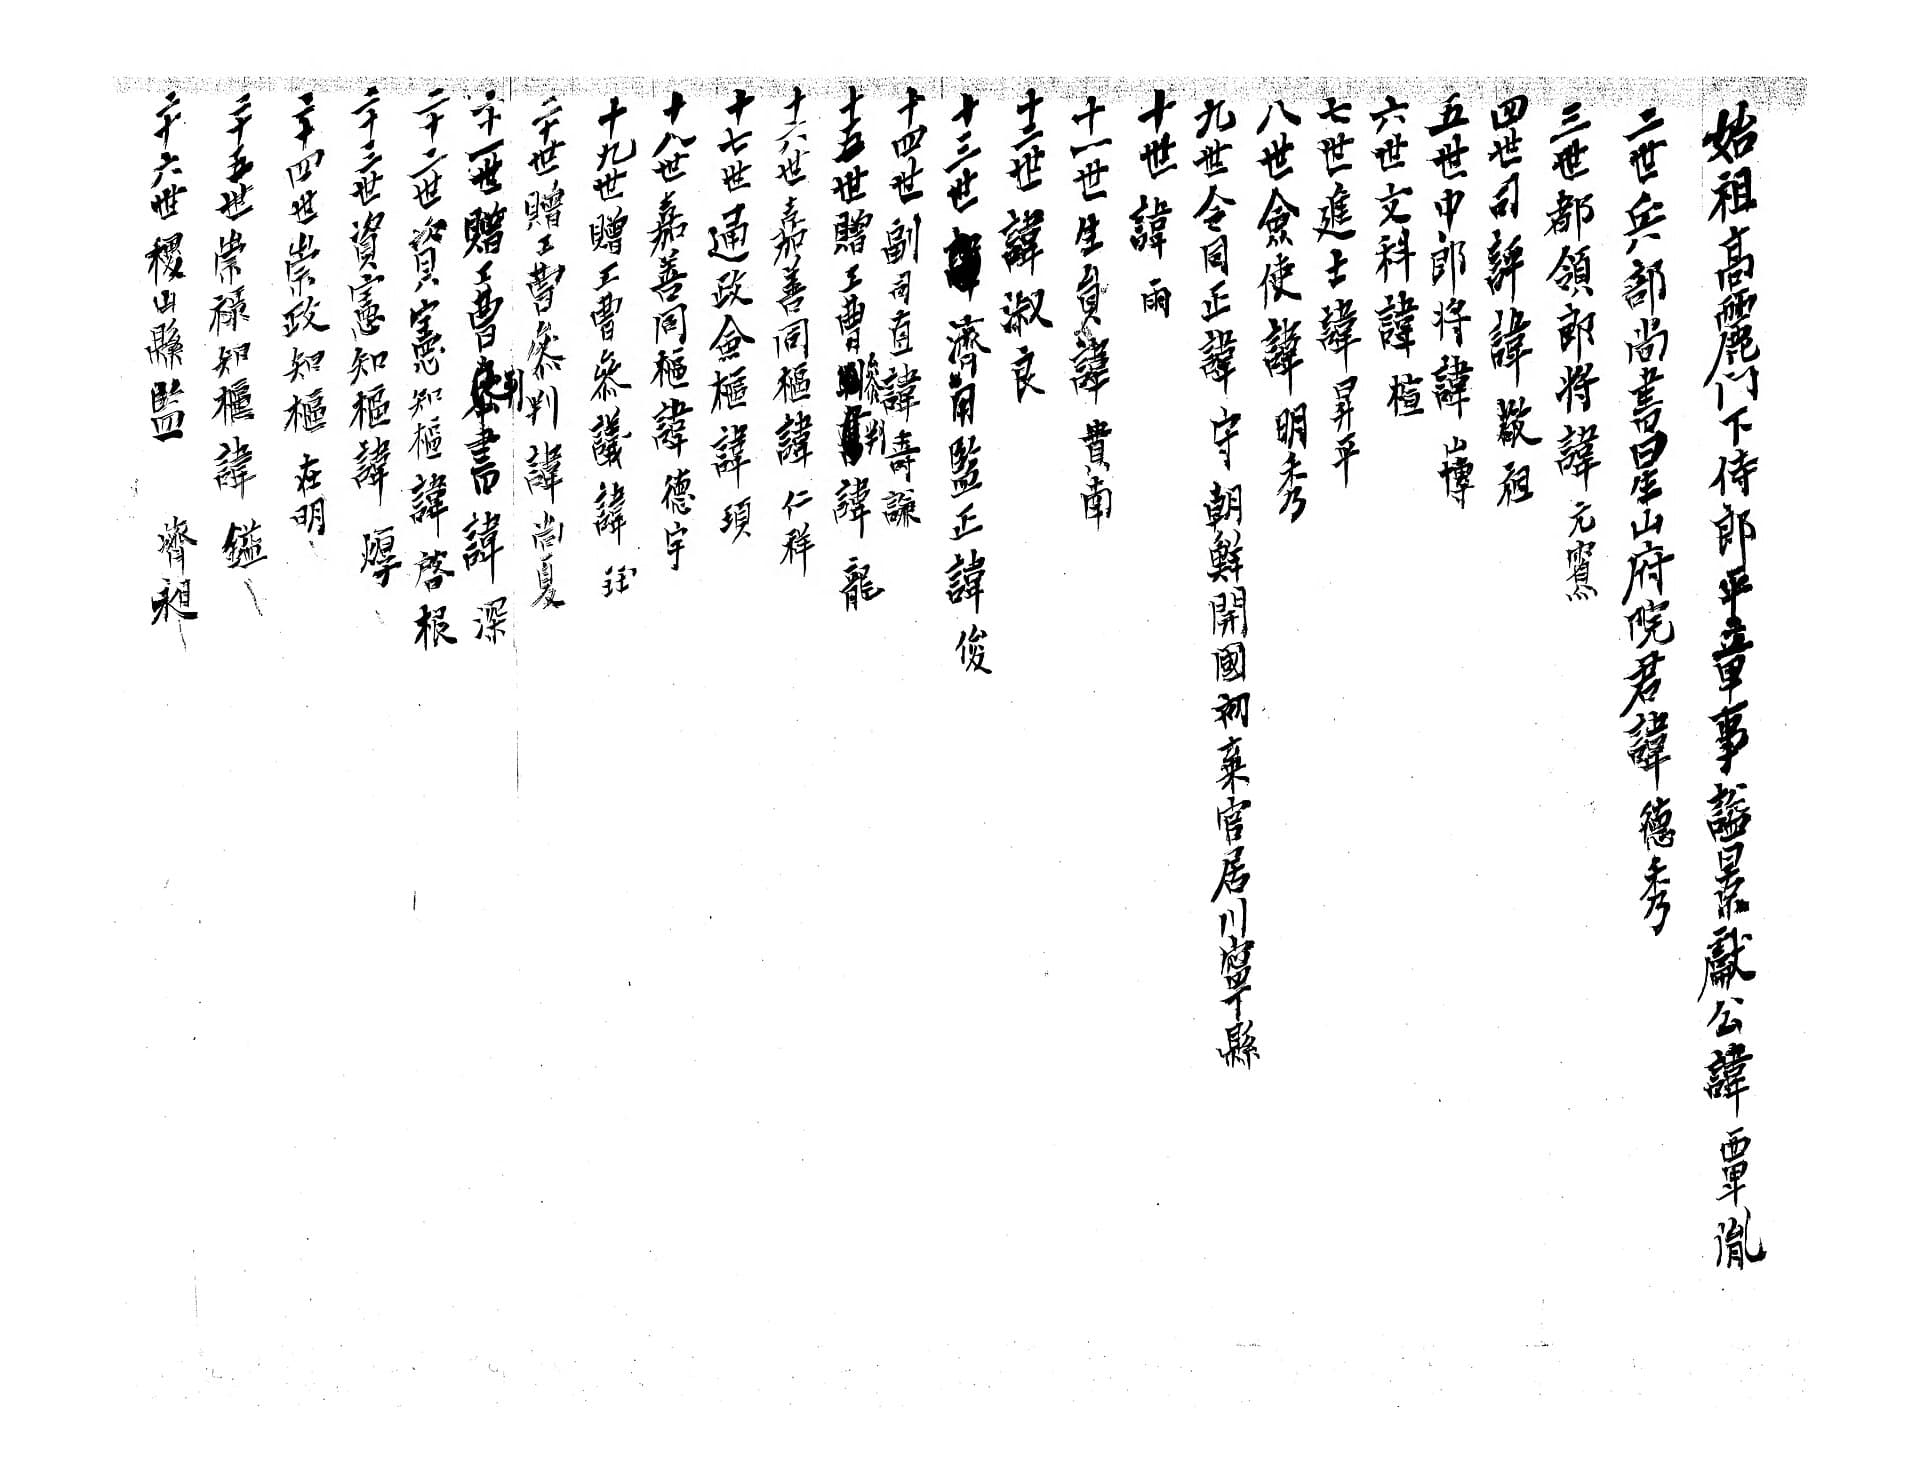 始祖高麗門下侍郎平章事謚景獻公諱 覃胤
二世兵部尚書星山府院君諱 德秀
三世都領郎将諱 元實
四世司諱諱 敬祖
五世中郎将諱 山博
六世文科諱 楦
七世進士諱 昇平
八世僉使諱 明秀
九世令同正諱 守 朝鮮開國初棄官居川寧縣
十世諱 雨
十一世生員諱 貴南
十二世諱 淑良
十三世 濟甫監正諱 俊
十四世副司直諱壽謙
十五世贈工曹參判諱 龍
十六世嘉善同樞諱 仁祥
十七世通政僉樞諱 頊
十八世嘉善同樞諱 德宇
十九世贈工曹參議諱
二十世贈工曹參判諱 尚夏
二十一世贈工曹判書諱 深
二十二世資憲知樞諱 啓根
二十三世資憲知樞諱 焞
二十四世崇政知樞 在明
二十五世崇祿知樞諱 鎰
二十六世稷山縣監 濟昶